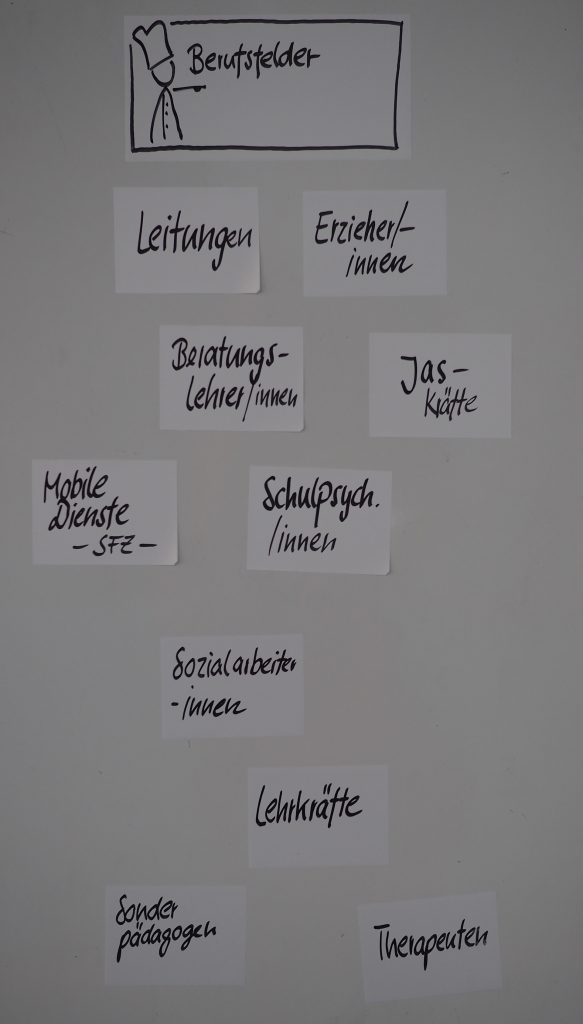 Berufsfelder
Leitungen
Erzieher/-
innen
Beratungs-
lehrer/innen
Jas-
Kräfte
Mobile
Dienste
- SFZ -
Schulpsych.
/innen
Sozialarbeiter
-innen
Lehrkräfte
Sonder
pädagogen
Therapeuten